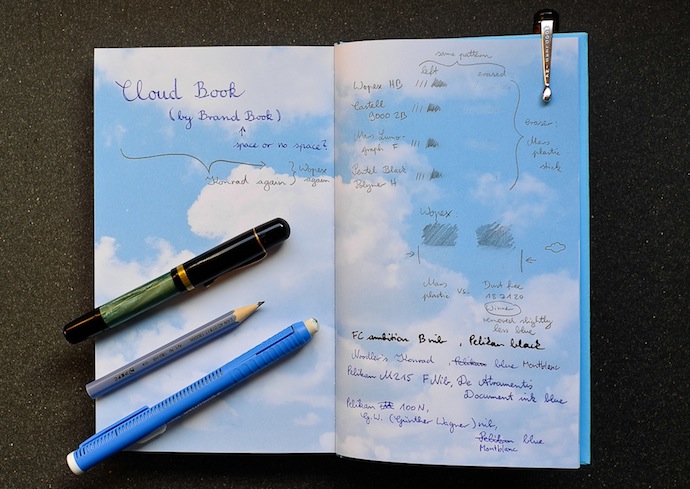 Cloud Book
(by Brand Book)
space or no space?
Konrad again
Wopex
again
same pattern
left erased
Wopex HB
Castell
9000 2B
Mars Lumo-
graph F
Pastel Black
H
eraser:
Mars
plastic
stick
Wopex
Mars
plastic vs. Dust free
18.7.120
Winner
removed slightly
less blue
FC ambition B nib, Pelikan black
Noodler's Konrad, Pelikan blue Montblanc
Pelikan M215 F Nib, De Atramentis
Document ink blue
Pelikan 100N,
G.W. (Günther Wagner) nib,
Pelikan blue
Montblanc